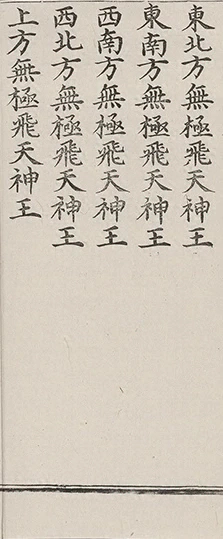 東北方無極飛天神王
東南方無極飛天神王
西南方無極飛天神王
西北方無極飛天神王
上方無極飛天神王